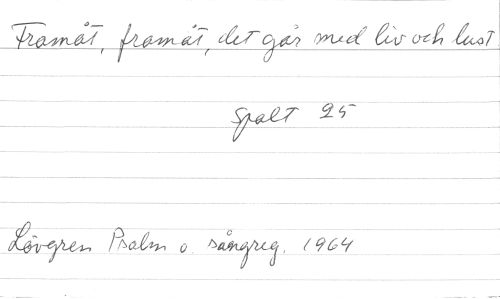 Framåt, framåt, det går med liv och lust
Spalt 25
Lövgren Psalm o. sångreg. 1964